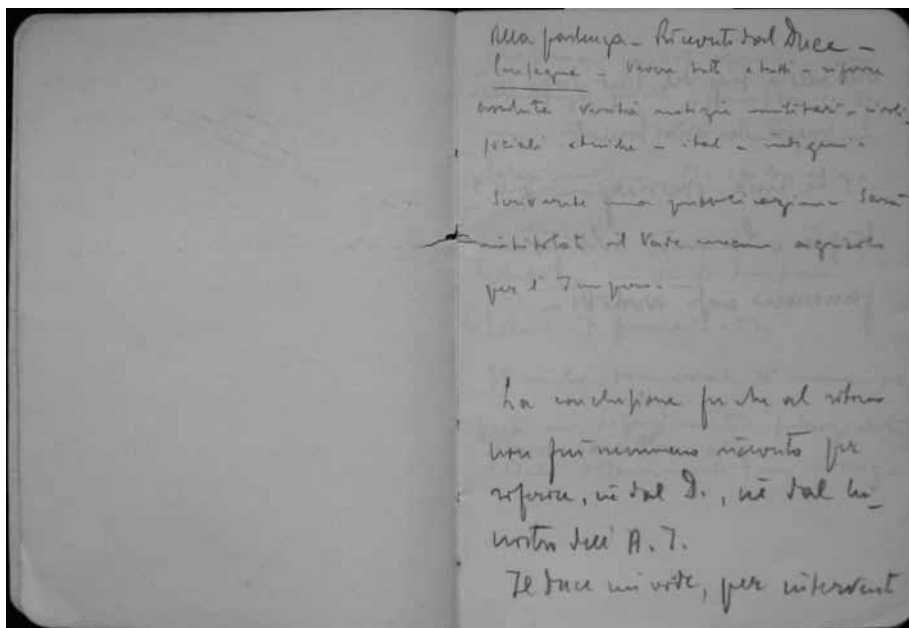 Alla partenza - Ricevuto dal Duce -
Consegna - vedere tutti e tutto - riferire
verità notizie militari - civili
sociali etniche - ital - indigeni -
Scriverete una pubblicazione. Sarà
intitolata il Vade mecum agricolo
per l'Impero. -
La conclusione fu che al ritorno
non fui nemmeno ricevuto per
riferire, nè dal D., nè dal Mi-
nistro dell'A. I.
Il duce mi vide, per